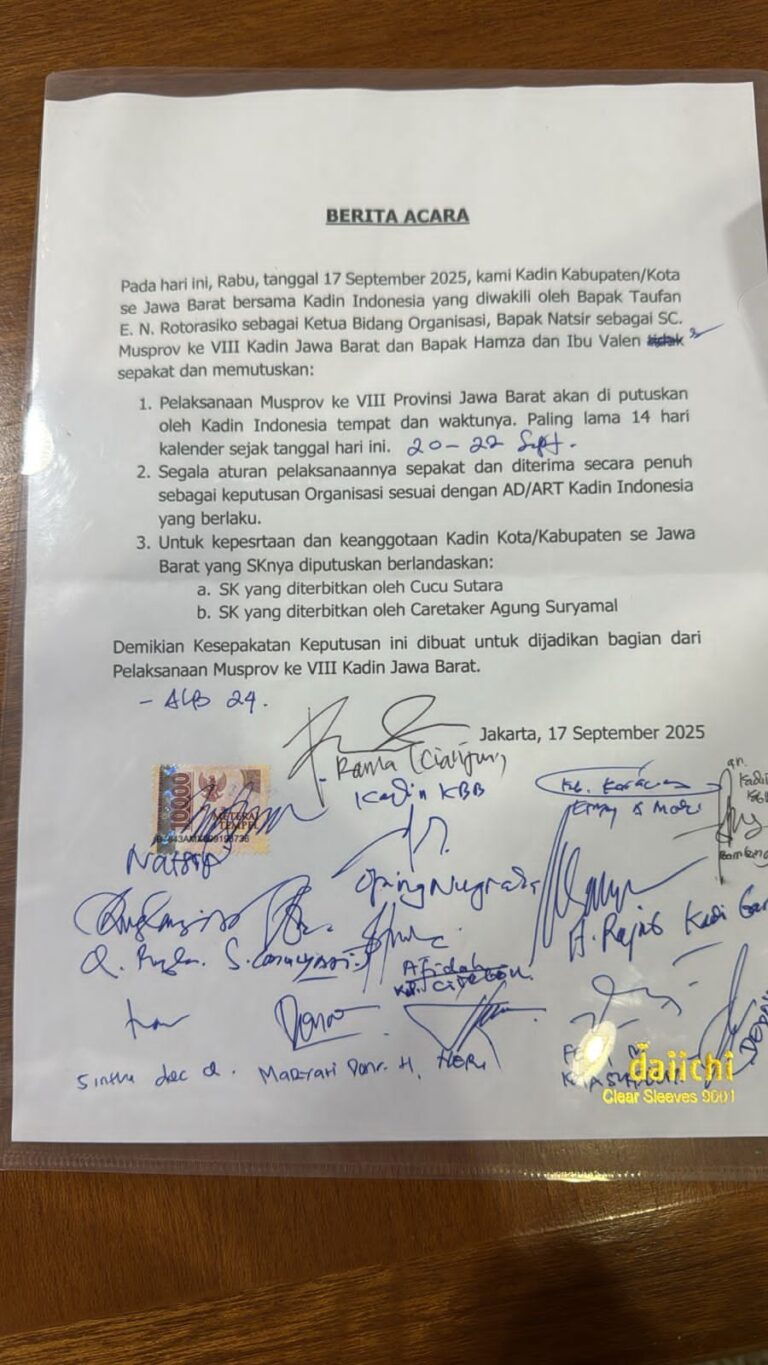 BERITA ACARA
Pada hari ini, Rabu, tanggal 17 September 2025, kami Kadin Kabupaten/Kota
se Jawa Barat bersama Kadin Indonesia yang diwakili oleh Bapak Taufan
E. N. Rotorasiko sebagai Ketua Bidang Organisasi, Bapak Natsir sebagai SC.
Musprov ke VIII Kadin Jawa Barat dan Bapak Hamza dan Ibu Valen tidak
sepakat dan memutuskan:
1. Pelaksanaan Musprov ke VIII Provinsi Jawa Barat akan di putuskan
oleh Kadin Indonesia tempat dan waktunya. Paling lama 14 hari
kalender sejak tanggal hari ini. 20-22 Sept.
2. Segala aturan pelaksanaannya sepakat dan diterima secara penuh
sebagai keputusan Organisasi sesuai dengan AD/ART Kadin Indonesia
yang berlaku.
3. Untuk kepesrtaan dan keanggotaan Kadin Kota/Kabupaten se Jawa
Barat yang SKnya diputuskan berlandaskan:
a. SK yang diterbitkan oleh Cucu Sutara
b. SK yang diterbitkan oleh Caretaker Agung Suryamal
Demikian Kesepakatan Keputusan ini dibuat untuk dijadikan bagian dari
Pelaksanaan Musprov ke VIII Kadin Jawa Barat.
- ALB 24.
Jakarta, 17 September 2025
Rama (Cianjur)
Kadin KBB
10000
METERAI
TEMPEL
Natsir
H. Rajab Kadi Gar
HERI
daiichi
Clear Sleeves 9001